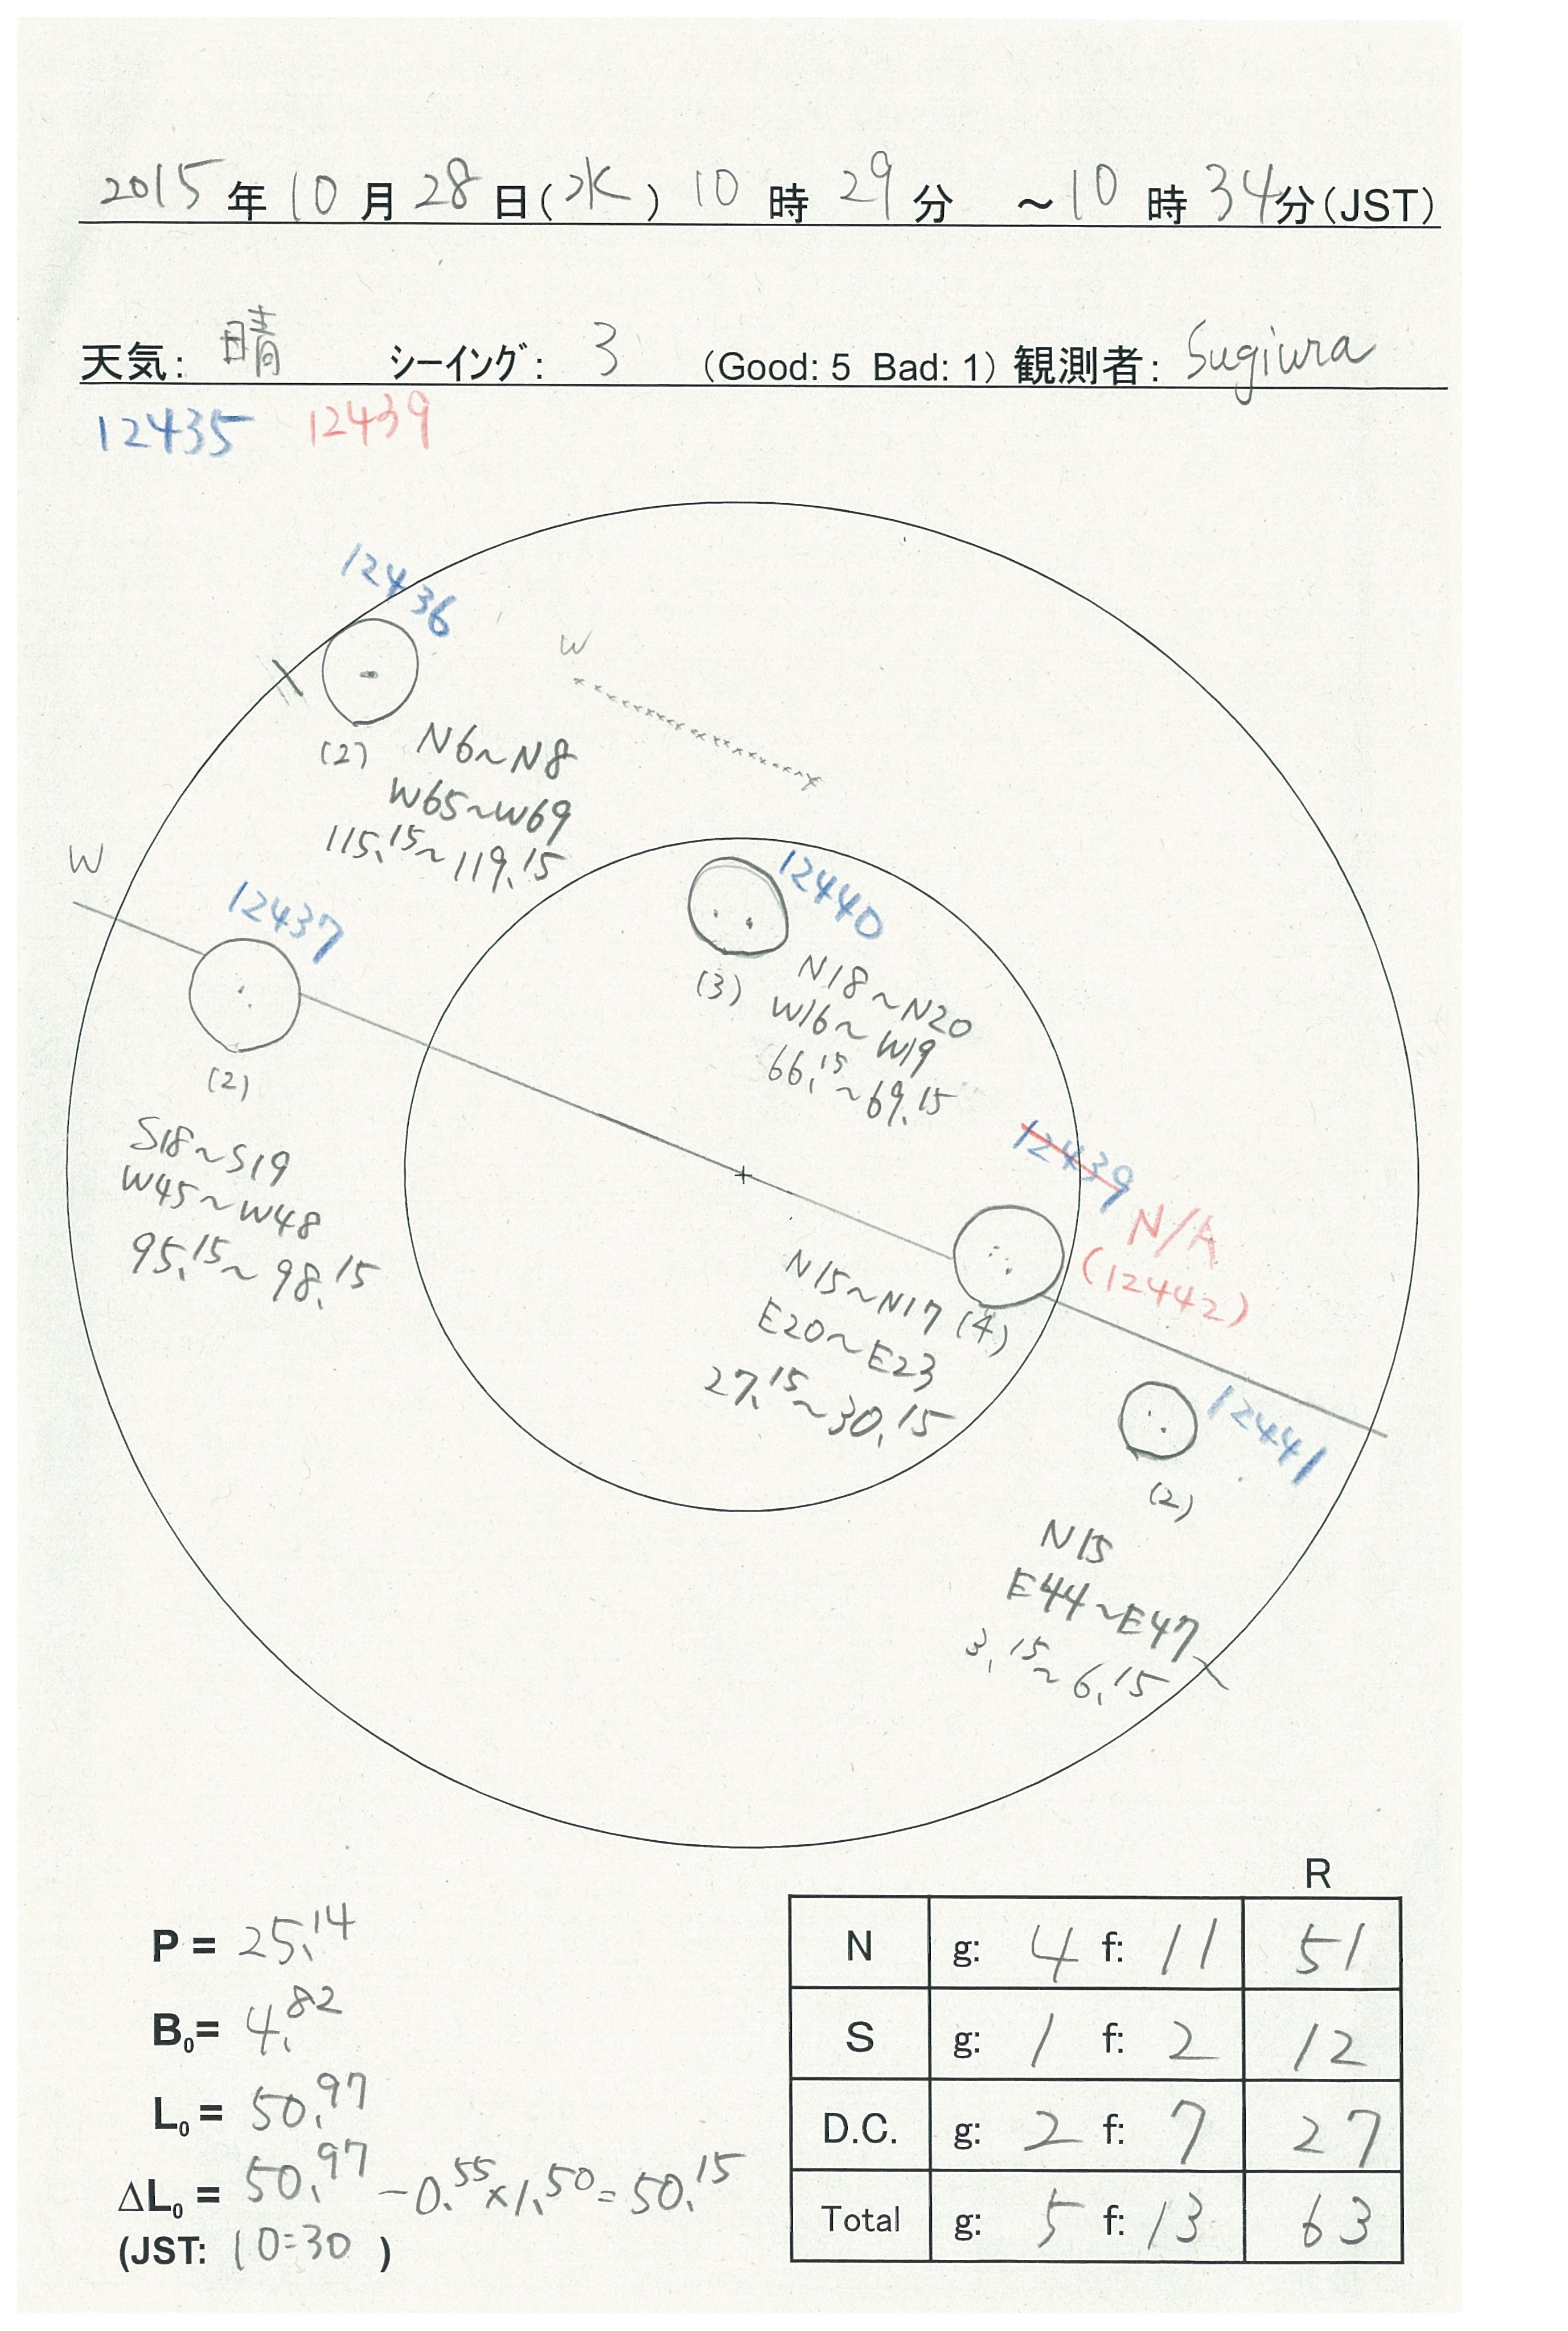 2015年10月28日(水) 10時29分 ～10時34分(JST)
天気: 晴 シーイング: 3 (Good: 5 Bad: 1) 観測者: Sugiura
12435 12439
12436
W
(2) N6~N8
W65~W69
115.15~119.15
W
12437
12440
(3) N18~N20
W16~W19
66.15~69.15
(2)
S18~S19
W45~W48
95.15~98.15
12439
N/A
(12442)
N15~N17 (4)
E20~E23
27.15~30.15
12441
(2)
N15
E44~E47
3.15~6.15
R
N g: 4 f: 11 51
S g: 1 f: 2 12
D.C. g: 2 f: 7 27
Total g: 5 f: 13 63
P = 25.14
B₀= 4.82
L₀ = 50.97
ΔL₀ = 50.97 - 0.55×1.50 = 50.15
(JST: 10=30 )